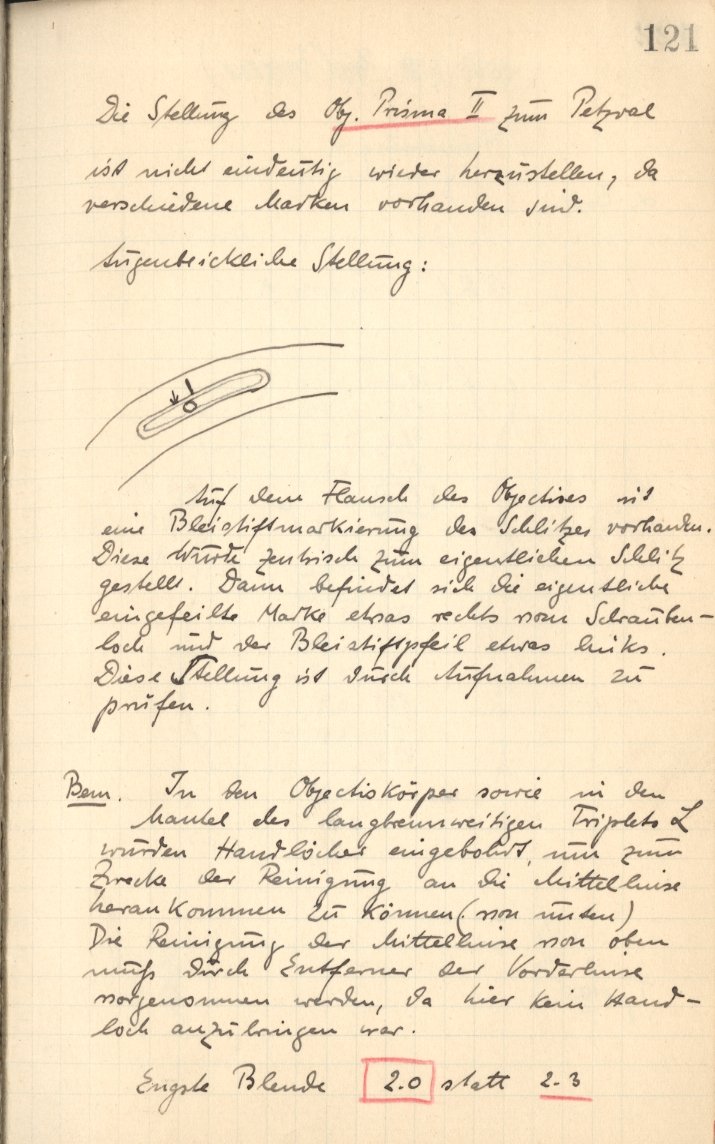 121
Die Stellung des Obj. Prisma II zum Petzval
ist nicht eindeutig wieder herzustellen, da
verschiedene Marken vorhanden sind.
Augenblickliche Stellung:
Auf dem Flansch des Objectives ist
eine Bleistiftmarkierung des Schlitzes vorhanden.
Diese wurde zentrisch zum eigentlichen Schlitz
gestellt. Dann befindet sich die eigentliche
eingefeilte Marke etwas rechts vom Schrauben-
loch und der Bleistiftpfeil etwas links.
Diese Stellung ist durch Aufnahmen zu
prüfen.
Bem. In den Objectivkörper sowie in den
Mantel des langbrennweitigen Triplets L
wurden Handlöcher eingebohrt, um zum
Zwecke der Reinigung an die Mittellinse
heran kommen zu können (von unten)
Die Reinigung der Mittellinse von oben
muß durch Entfernen der Vorderlinse
vorgenommen werden, da hier kein Hand-
loch anzubringen war.
Engste Blende 2.0 statt 2.3